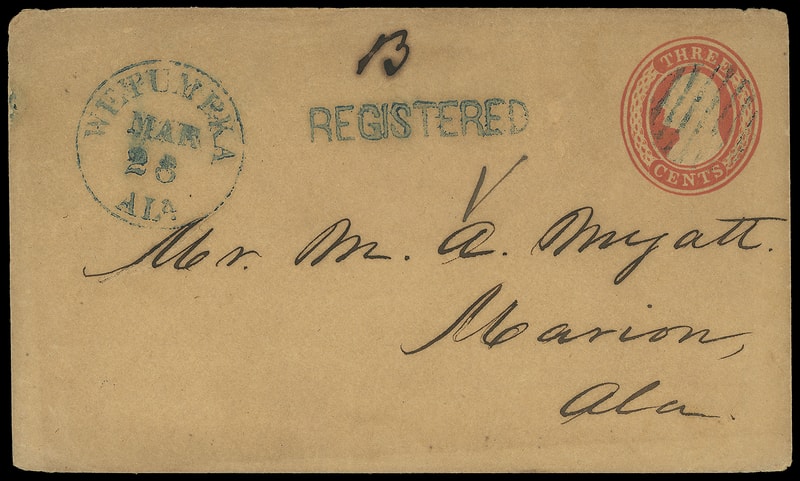 B
WETUMPKA
MAR
28
ALA
REGISTERED
THREE
CENTS
Mr. M. A. Myatt.
Marion,
Ala.